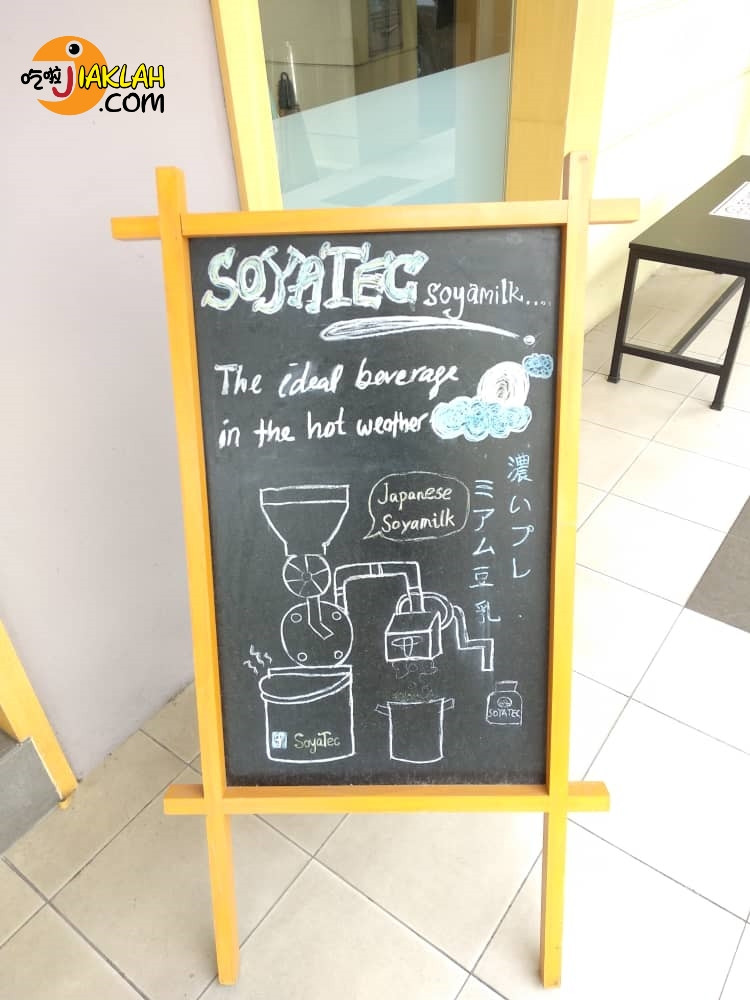 吃啦JIAKLAH
.COM
SOYATEC soyamilk....
The ideal beverage
in the hot weather
Japanese
Soyamilk
濃いプレ
ミアム豆乳
SoyaTec
SOYATEC